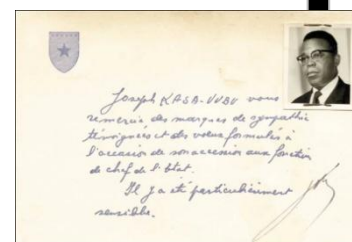 Joseph KASA-VUBU vous
remercie des marques de sympathie
témoignées et des vœux formulés à
l'occasion de son accession aux fonctions
de chef de l'Etat.
Il y a été particulièrement
sensible.